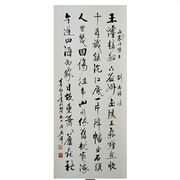 王濬樓船下益州金陵王氣黯然收
千尋鐵鎖沉江底一片降幡出石頭
人世幾回傷往事山形依舊枕寒流
今逢四海為家日故壘蕭蕭蘆荻秋